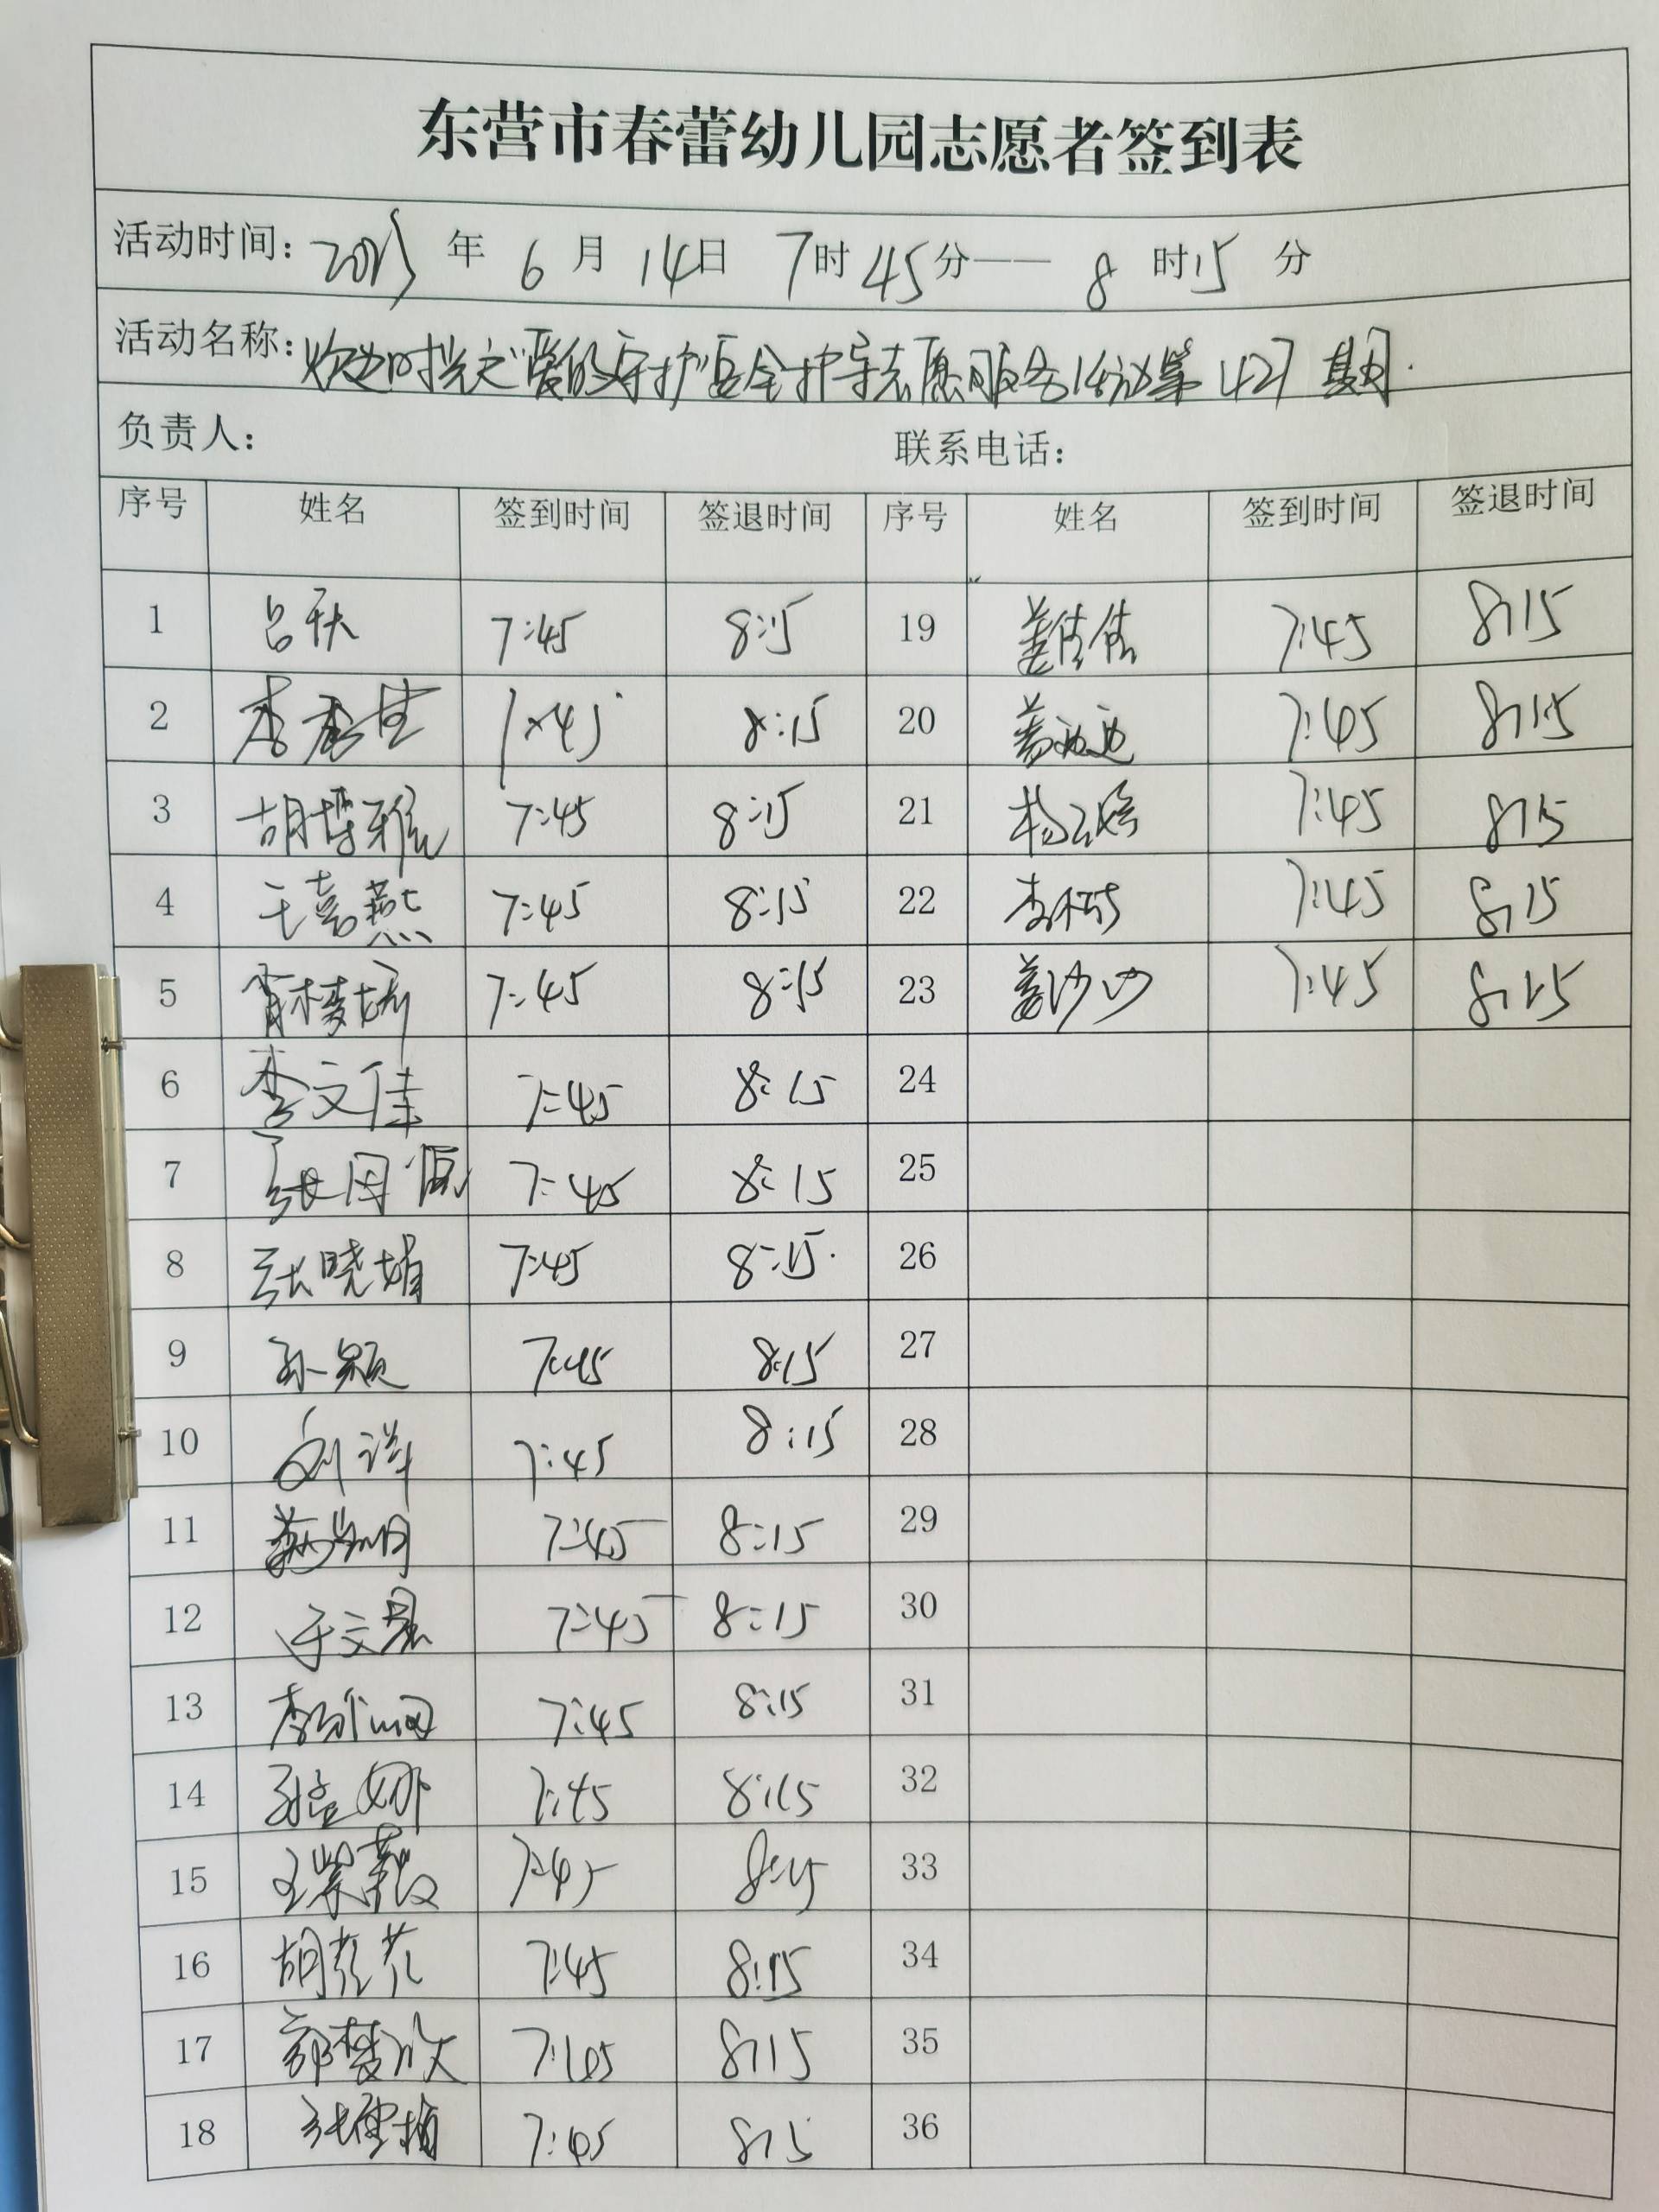 东营市春蕾幼儿园志愿者签到表
活动时间: 2023 年 6 月 14日 7时 45分—— 8 时15 分
活动名称: 时光之"爱的守护"安全护导志愿服务活动第 427 期
负责人: 联系电话:
序号 姓名 签到时间 签退时间 序号 姓名 签到时间 签退时间
1 吕秋 7:45 8:15 19 姜倩倩 7:45 8:15
2 李 7:45 8:15 20 7:45 8:15
3 胡雅 7:45 8:15 21 杨 7:45 8:15
4 王喜燕 7:45 8:15 22 李 7:45 8:15
5 肖梦娇 7:45 8:15 23 姜沙沙 7:45 8:15
6 李文佳 7:45 8:15 24
7 张 7:45 8:15 25
8 张晓娟 7:45 8:15 26
9 孙颖 7:45 8:15 27
10 刘洋 7:45 8:15 28
11 7:45 8:15 29
12 于文 7:45 8:15 30
13 李 7:45 8:15 31
14 孙孟娜 7:45 8:15 32
15 王紫薇 7:45 8:15 33
16 胡芸芸 7:45 8:15 34
17 郭梦欣 7:45 8:15 35
18 张雪梅 7:45 8:15 36